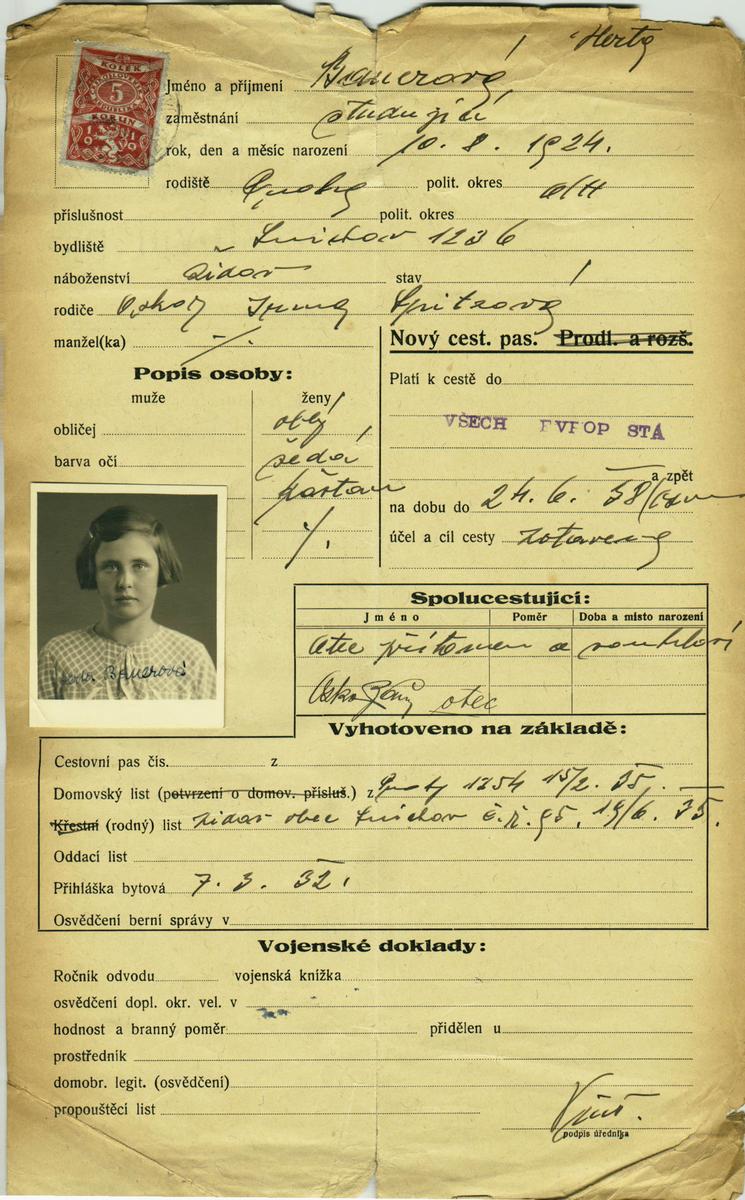 Herta
KOLEK
5
KORUN
1919
Jméno a příjmení Bauerová
zaměstnání studující
rok, den a měsíc narození 10. 8. 1924.
rodiště Praha polit. okres dtt
příslušnost polit. okres
bydliště Smíchov 1236
náboženství židov stav /
rodiče Oskar Irma Spitzová
manžel(ka) ·/.
Nový cest. pas. Prodl. a rozš.
Popis osoby:
Platí k cestě do
muže ženy
obličej oblý
VŠECH EVROP STÁ
barva očí šedá
kaštan
a zpět
na dobu do 24. 6. 38
·/.
účel a cíl cesty zotavená
Spolucestující:
Jméno Poměr Doba a místo narození
otec přítomen a souhlasí
Oskar otec
Bauerová
Vyhotoveno na základě:
Cestovní pas čís. z
Domovský list (potvrzení o domov. přísluš.) z Prahy 1254 15/2. 35.
Křestní (rodný) list židov obec Smíchov č.ř. 95. 19/6. 35.
Oddací list
Přihláška bytová 7. 3. 32.
Osvědčení berní správy v
Vojenské doklady:
Ročník odvodu vojenská knížka
osvědčení dopl. okr. vel. v
hodnost a branný poměr přidělen u
prostředník
domobr. legit. (osvědčení)
propouštěcí list
podpis úředníka